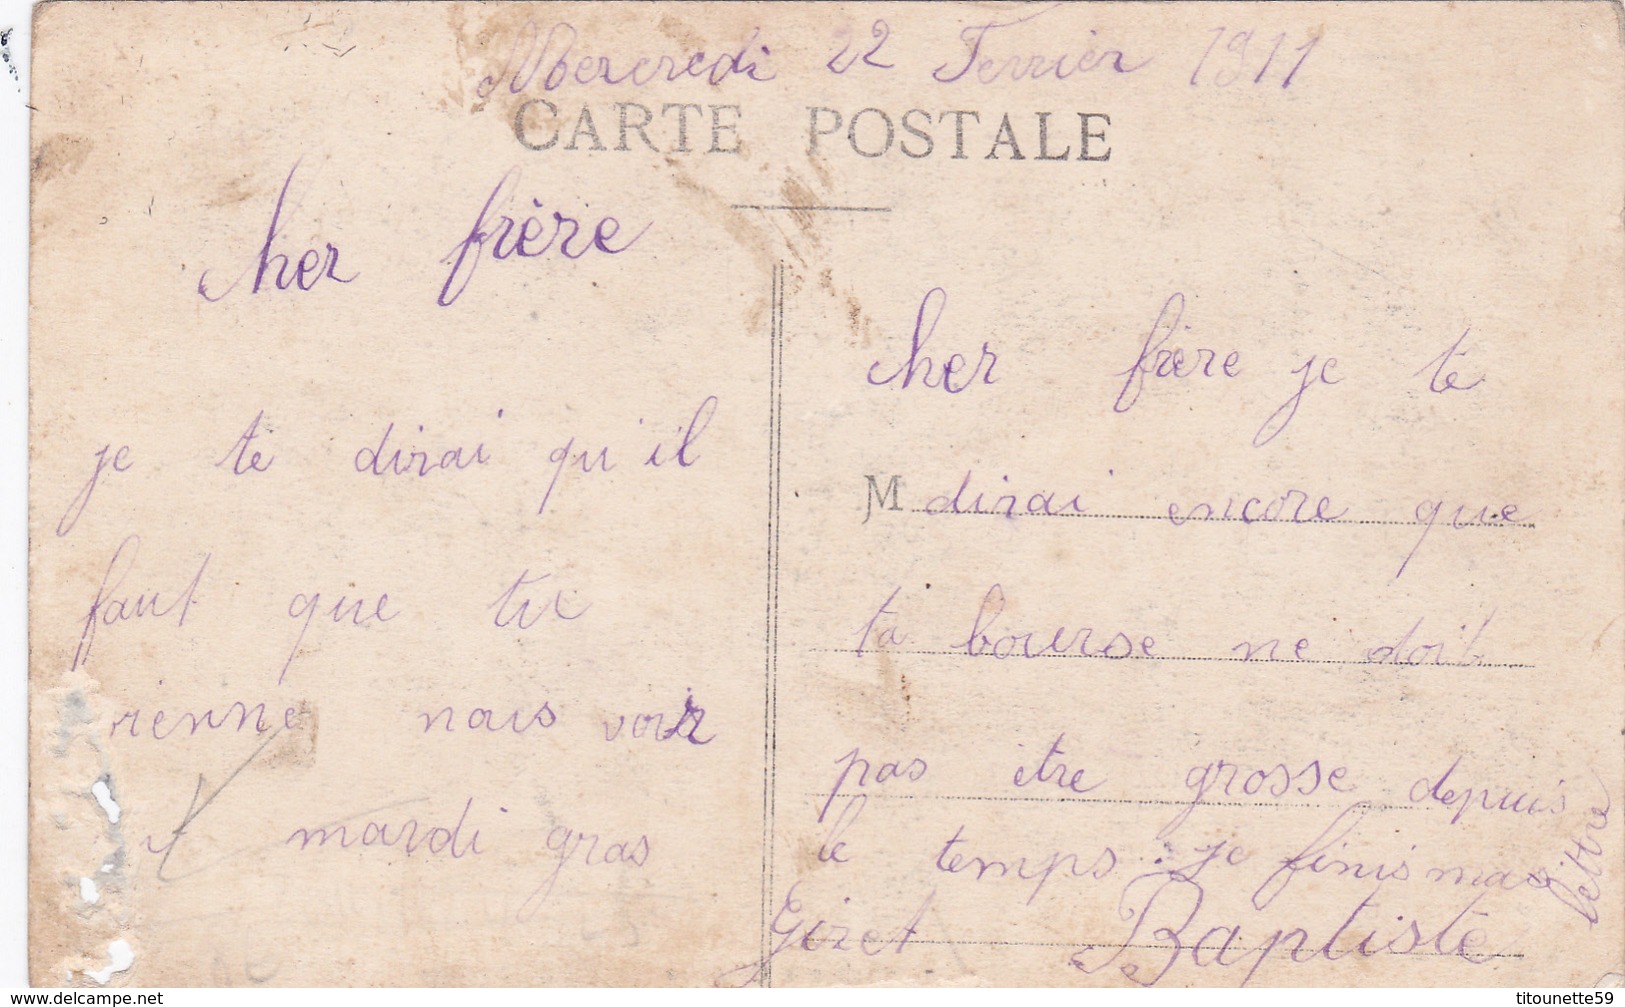 Mercredi 22 Ferrier 1911
CARTE POSTALE
cher frère
je te dirai qu'il
faut que tu
vienne nous voir
mardi gras
cher frère je te
M dirai encore que
ta bourse ne doit
pas être grosse depuis
le temps : je finis ma
lettre
Giret Baptiste
https://www.delcampe.net
titounette59